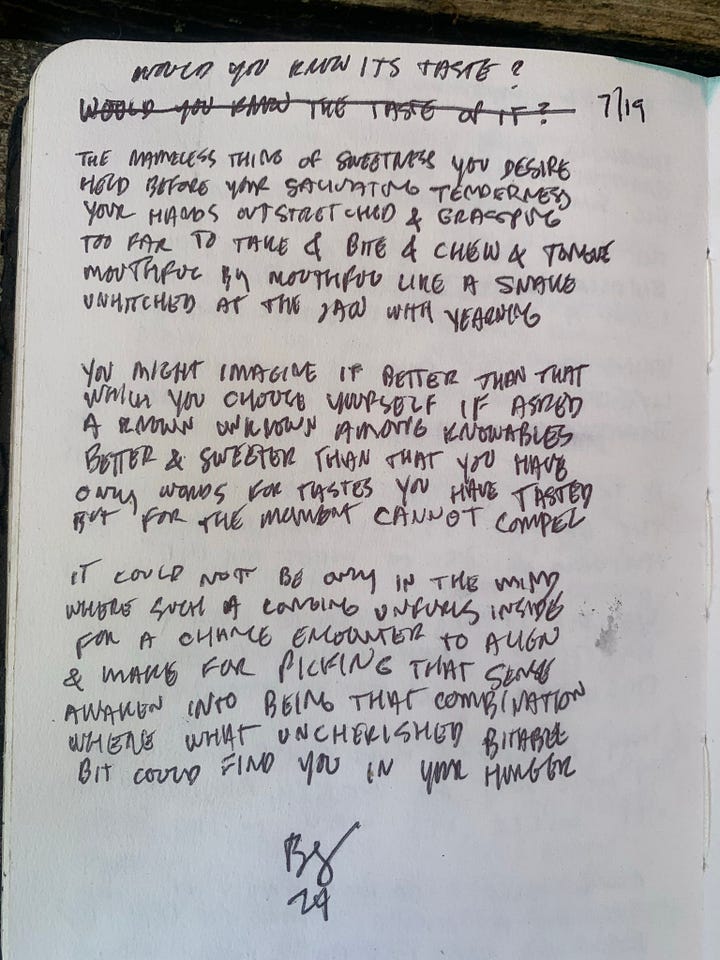 WOULD YOU KNOW ITS TASTE?
WOULD YOU KNOW THE TASTE OF IT? 7/19
THE NAMELESS THING OF SWEETNESS YOU DESIRE
HELD BEFORE YOUR SALIVATING TENDERNESS
YOUR HANDS OUTSTRETCHED & GRASPING
TOO FAR TO TAKE & BITE & CHEW & TONGUE
MOUTHFUL BY MOUTHFUL LIKE A SNAKE
UNHITCHED AT THE JAW WITH YEARNING
YOU MIGHT IMAGINE IF BETTER THAN THAT
WHICH YOU CHOOSE YOURSELF IF ASKED
A KNOWN UNKNOWN AMONG KNOWABLES
BETTER & SWEETER THAN THAT YOU HAVE
ONLY WORDS FOR TASTES YOU HAVE TASTED
BUT FOR THE MOMENT CANNOT COMPEL
IT COULD NOT BE ONLY IN THE MIND
WHERE SUCH A LONGING UNFURLS INSIDE
FOR A CHANCE ENCOUNTER TO ALIGN
& MAKE FOR PICKING THAT SENSE
AWAKEN INTO BEING THAT COMBINATION
WHERE WHAT UNCHERISHED BITABLE
BIT COULD FIND YOU IN YOUR HUNGER
24